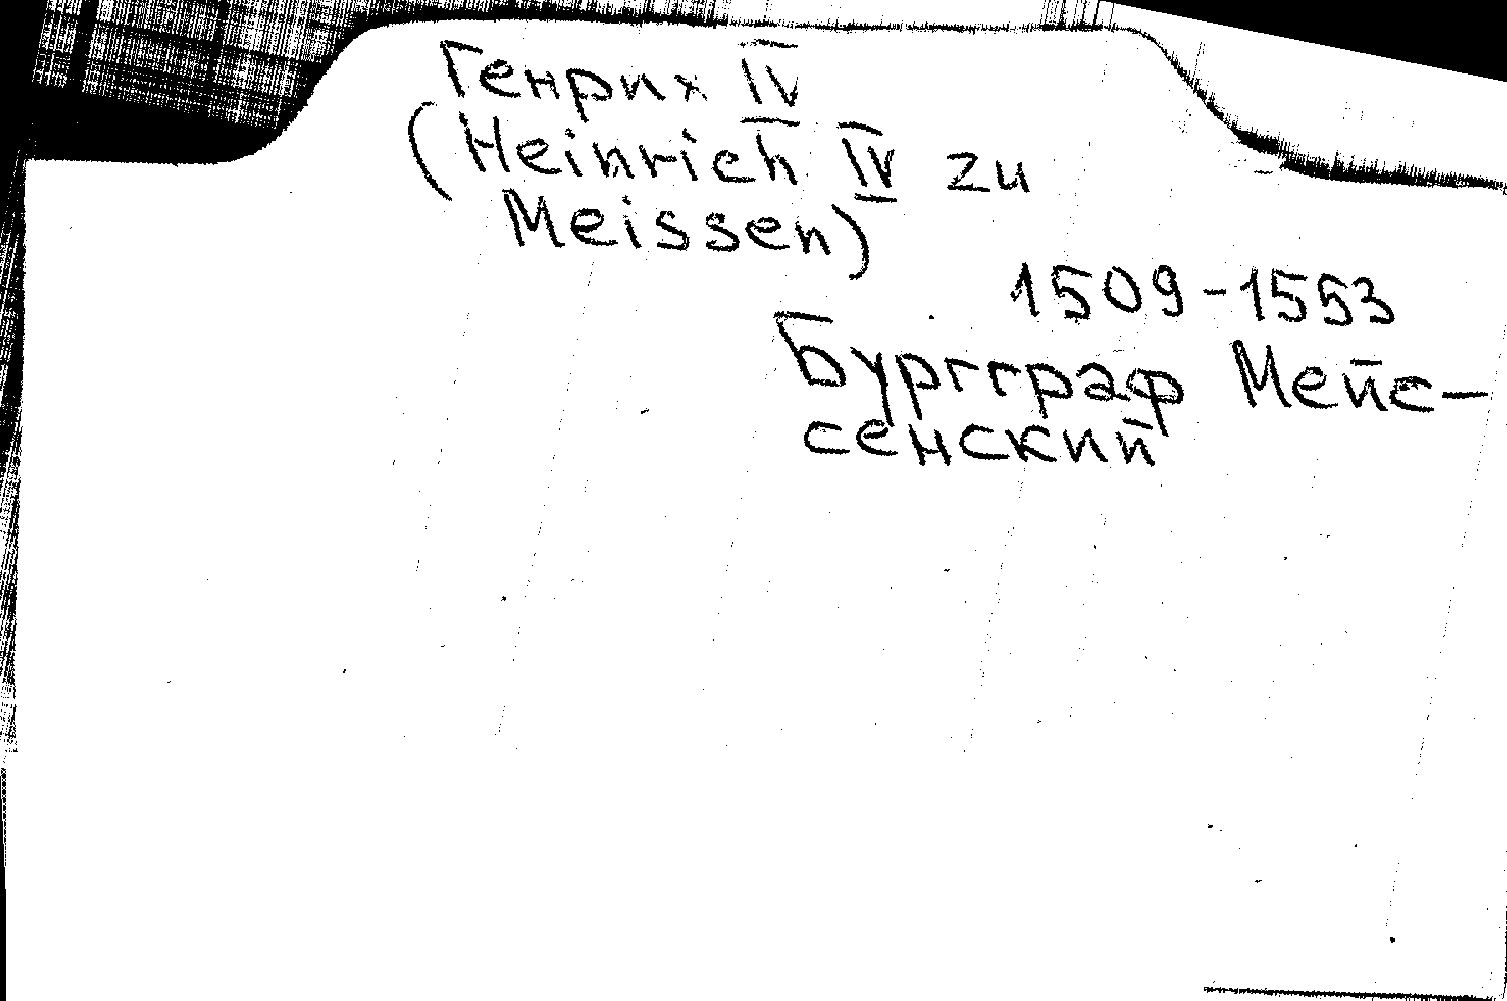 Генрих IV
(Heinrich IV zu
Meissen)
1509-1553
Бургграф Мейс-
сенский